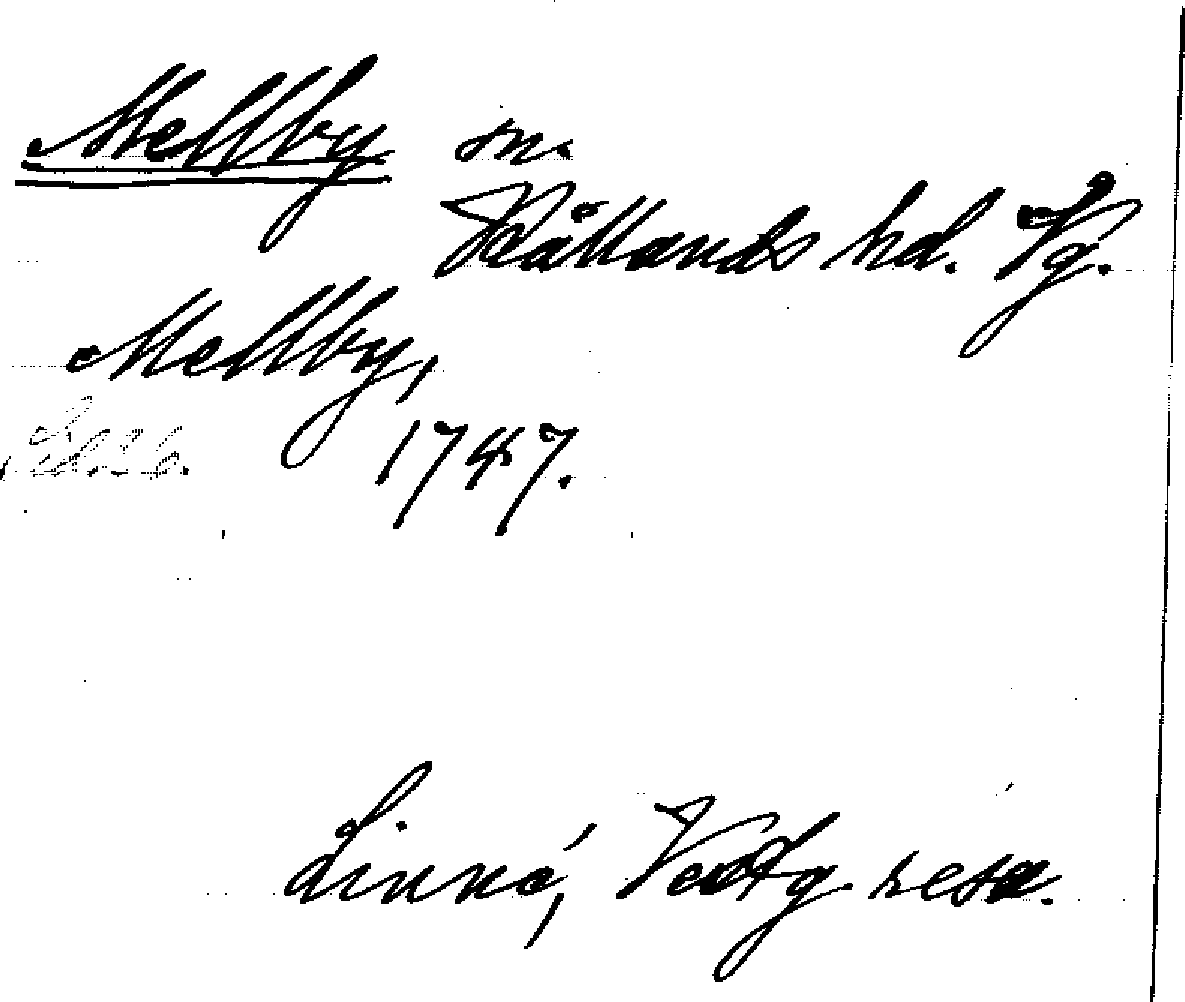 Mellby sn.
Kållands hd. Vg.
Mellby,
1747.
Linné, Vestg. resa.